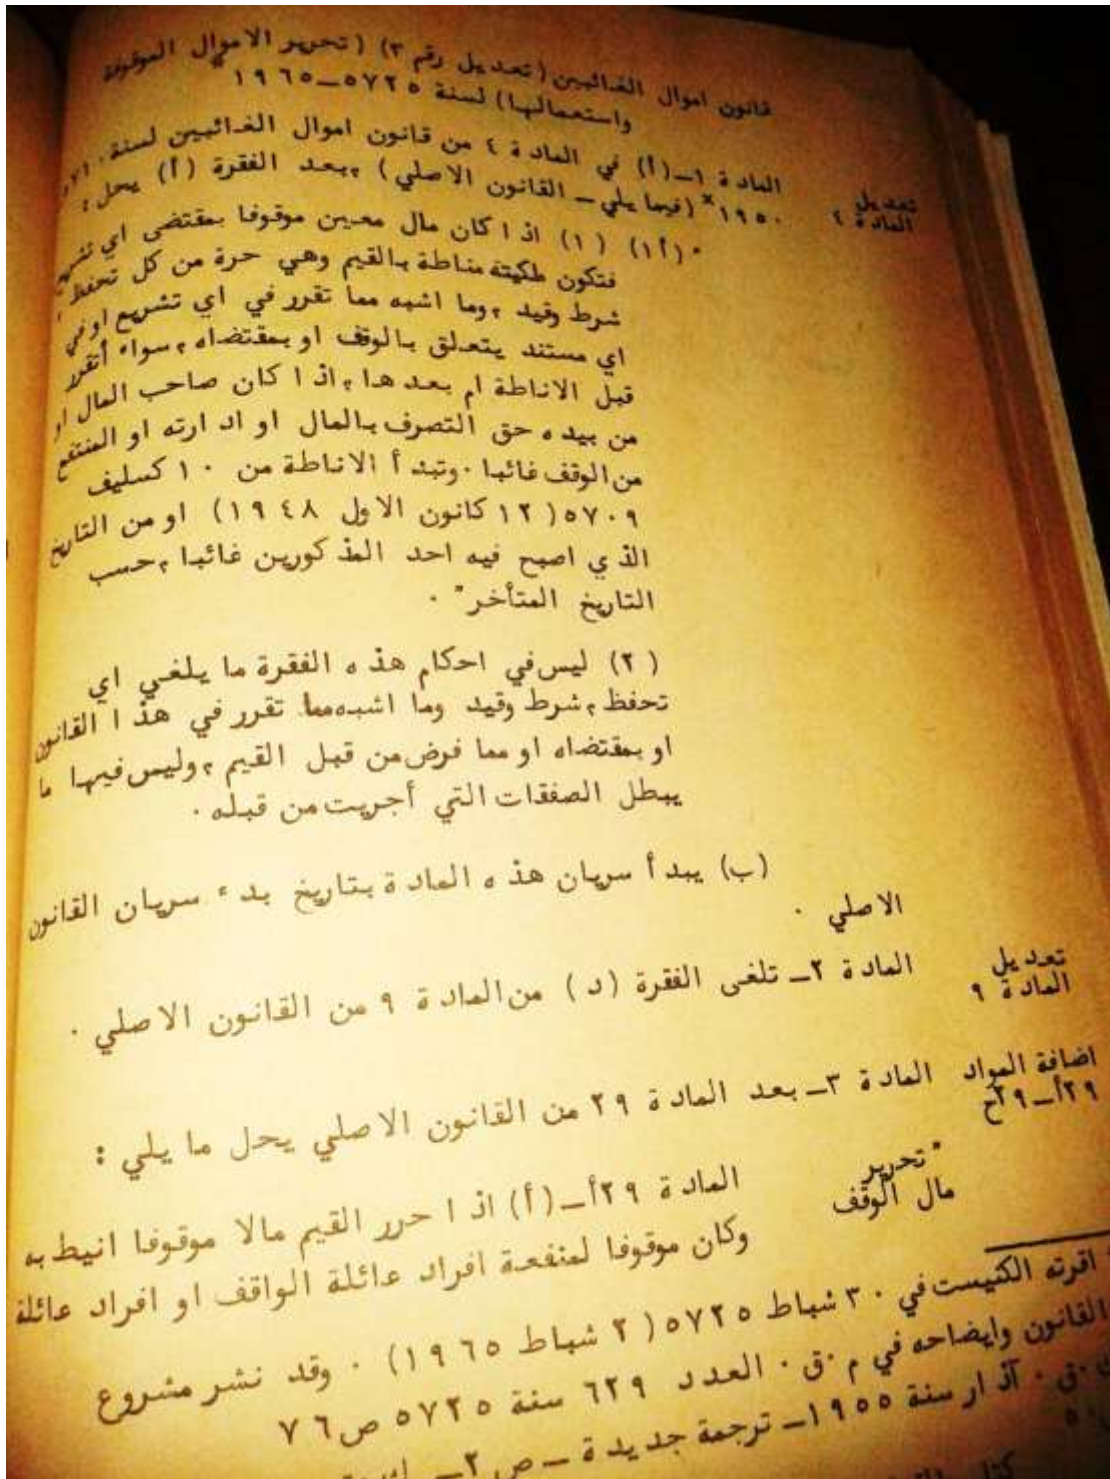 قانون اموال الغائبين (تعديل رقم ٣) (تحرير الاموال الموقوفة
واستعمالها) لسنة ٥٧٢٥ــ١٩٦٥*
تعديل
المادة ٤
المادة ١ــ(أ) في المادة ٤ من قانون اموال الغائبين لسنة
١٩٥٠× (فيما يلي ــ القانون الاصلي) ،بعد الفقرة (أ) يحل :
"(أ١) (١) اذا كان مال معين موقوفا بمقتضى اي تشريع
فتكون ملكيته مناطة بالقيم وهي حرة من كل تحفظ ،
شرط وقيد ،وما اشبه مما تقرر في اي تشريع او في
اي مستند يتعلق بالوقف او بمقتضاه ،سواء أتقرر
قبل الاناطة ام بعدها ،اذا كان صاحب المال او
من بيده حق التصرف بالمال او ادارته او المنتفع
من الوقف غائبا ٠وتبدأ الاناطة من ١٠ كسليف
٥٧٠٩ (١٢ كانون الاول ١٩٤٨) او من التاريخ
الذي اصبح فيه احد المذكورين غائبا ،حسب
التاريخ المتأخر" ٠
(٢) ليس في احكام هذه الفقرة ما يلغي اي
تحفظ ،شرط وقيد وما اشبه مما تقرر في هذا القانون
او بمقتضاه او مما فرض من قبل القيم ،وليس فيها ما
يبطل الصفقات التي أجريت من قبله ٠
(ب) يبدأ سريان هذه المادة بتاريخ بدء سريان القانون
الاصلي ٠
تعديل
المادة ٩
المادة ٢ــ تلغى الفقرة (د) من المادة ٩ من القانون الاصلي ٠
اضافة المواد
٢٩أــ٢٩ح
المادة ٣ــ بعد المادة ٢٩ من القانون الاصلي يحل ما يلي :
"تحرير
مال الوقف
المادة ٢٩أــ(أ) اذا حرر القيم مالا موقوفا انيط به
وكان موقوفا لمنفعة افراد عائلة الواقف او افراد عائلة
اقرته الكنيست في ٣٠ شباط ٥٧٢٥ (٢ شباط ١٩٦٥) ٠ وقد نشر مشروع
القانون وايضاحه في م ٠ق ٠ العدد ٦٢٩ سنة ٥٧٢٥ ص ٧٦
ق ٠ آذار سنة ١٩٥٥ــ ترجمة جديدة ــ ص ٢ــ